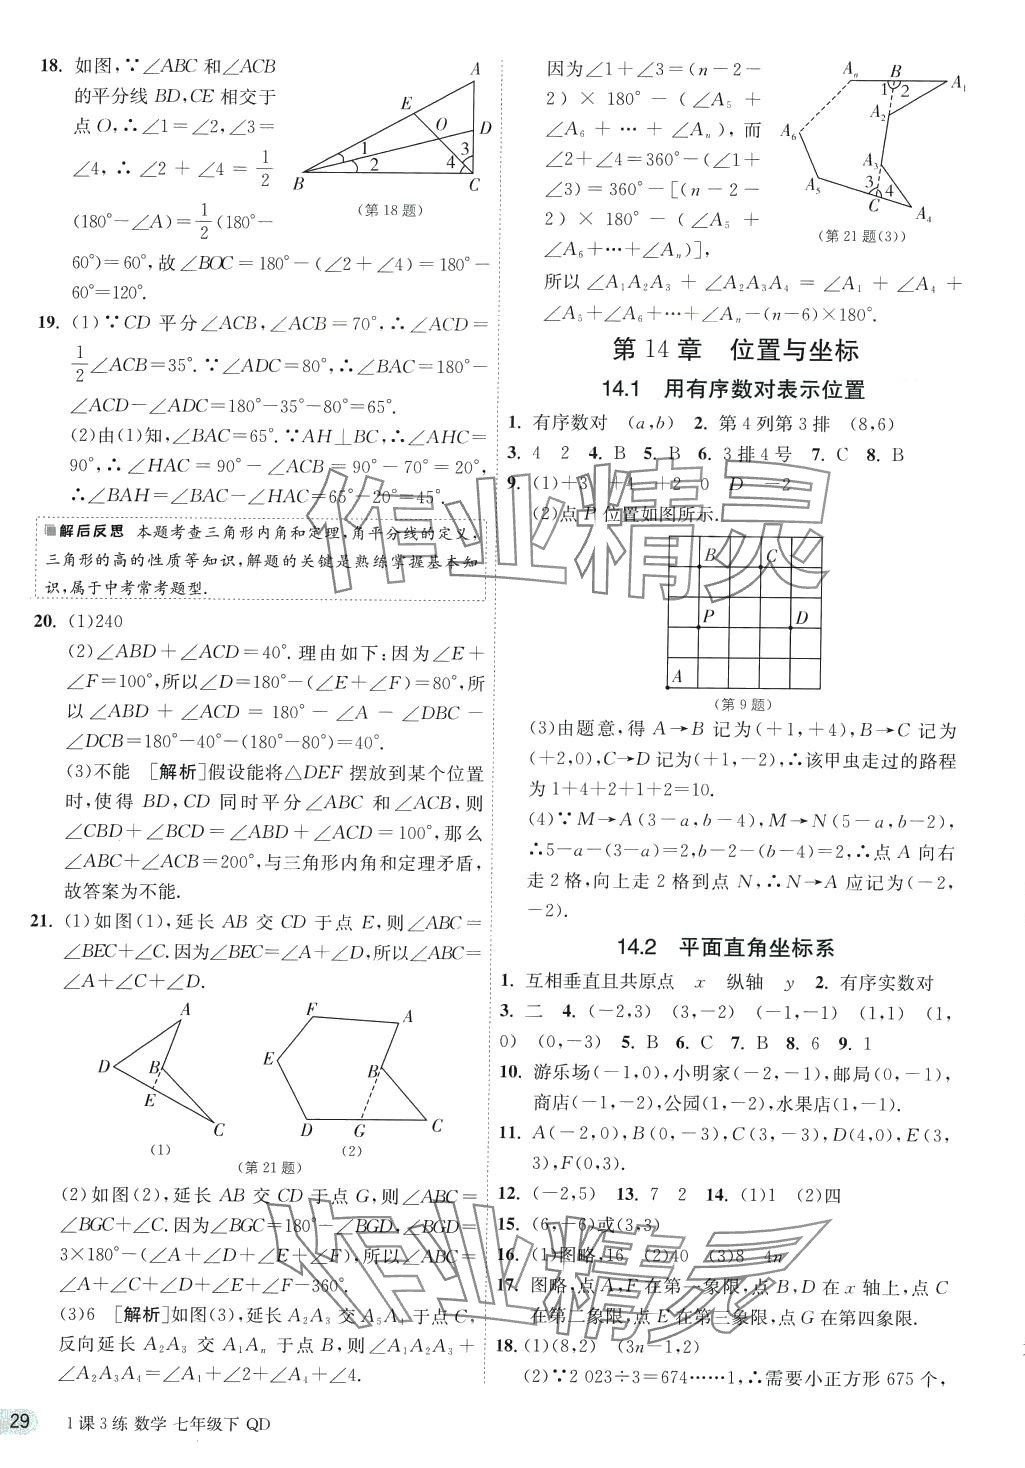 18. 如图,∵∠ABC 和∠ACB
的平分线 BD,CE 相交于
点 O,∴∠1=∠2,∠3=
∠4,∴ ∠2 + ∠4 = 1/2
(180°-∠A)=1/2(180°-
60°)=60°,故∠BOC=180°-(∠2+∠4)=180°-
60°=120°.
A
E
O
D
1
2
3
4
B
C
(第 18 题)
19. (1)∵CD 平分∠ACB,∠ACB=70°,∴∠ACD=
1/2∠ACB=35°.∵∠ADC=80°,∴∠BAC=180°-
∠ACD-∠ADC=180°-35°-80°=65°.
(2)由(1)知,∠BAC=65°.∵AH⊥BC,∴∠AHC=
90°,∴∠HAC=90°-∠ACB=90°-70°=20°,
∴∠BAH=∠BAC-∠HAC=65°-20°=45°.
解后反思 本题考查三角形内角和定理,角平分线的定义,
三角形的高的性质等知识,解题的关键是熟练掌握基本知
识,属于中考常考题型.
20. (1)240
(2)∠ABD+∠ACD=40°.理由如下:因为∠E+
∠F=100°,所以∠D=180°-(∠E+∠F)=80°,所
以∠ABD + ∠ACD = 180° - ∠A - ∠DBC -
∠DCB=180°-40°-(180°-80°)=40°.
(3)不能 [解析]假设能将△DEF 摆放到某个位置
时,使得 BD,CD 同时平分∠ABC 和∠ACB,则
∠CBD+∠BCD=∠ABD+∠ACD=100°,那么
∠ABC+∠ACB=200°,与三角形内角和定理矛盾,
故答案为不能.
21. (1)如图(1),延长 AB 交 CD 于点 E,则∠ABC=
∠BEC+∠C.因为∠BEC=∠A+∠D,所以∠ABC=
∠A+∠C+∠D.
A
D
B
E
C
(1)
F
A
E
B
D
G
C
(2)
(第 21 题)
(2)如图(2),延长 AB 交 CD 于点 G,则∠ABC=
∠BGC+∠C.因为∠BGC=180°-∠BGD,∠BGD=
3×180°-(∠A+∠D+∠E+∠F),所以∠ABC=
∠A+∠C+∠D+∠E+∠F-360°.
(3)6 [解析]如图(3),延长 A₂A₃ 交 A₅A₄ 于点 C,
反向延长 A₂A₃ 交 A₁Aₙ 于点 B,则∠A₁A₂A₃+
∠A₂A₃A₄=∠A₁+∠2+∠A₄+∠4.
29
1 课 3 练 数学 七年级下 QD
因为∠1+∠3=(n-2-
2) × 180° - (∠A₅ +
∠A₆ + … + ∠Aₙ),而
∠2+∠4=360°-(∠1+
∠3)=360°-[(n-2-
2) × 180° - (∠A₅ +
∠A₆+…+∠Aₙ)],
Aₙ
B
A₁
1
2
A₂
A₆
A₃
A₅
3
4
C
A₄
(第 21 题(3))
所以∠A₁A₂A₃ + ∠A₂A₃A₄ = ∠A₁ + ∠A₄ +
∠A₅+∠A₆+…+∠Aₙ-(n-6)×180°.
第 14 章 位置与坐标
14.1 用有序数对表示位置
1. 有序数对 (a,b) 2. 第 4 列第 3 排 (8,6)
3. 4 2 4. B 5. B 6. 3 排 4 号 7. C 8. B
9. (1)+3 +4 +2 0 D -2
(2)点 P 位置如图所示.
B
C
P
D
A
(第 9 题)
(3)由题意,得 A→B 记为(+1,+4),B→C 记为
(+2,0),C→D 记为(+1,-2),∴该甲虫走过的路程
为 1+4+2+1+2=10.
(4)∵M→A(3-a,b-4),M→N(5-a,b-2),
∴5-a-(3-a)=2,b-2-(b-4)=2,∴点 A 向右
走 2 格,向上走 2 格到点 N,∴N→A 应记为(-2,
-2).
14.2 平面直角坐标系
1. 互相垂直且共原点 x 纵轴 y 2. 有序实数对
3. 二 4. (-2,3) (3,-2) (-1,-1) (1,1) (1,
0) (0,-3) 5. B 6. C 7. B 8. 6 9. 1
10. 游乐场(-1,0),小明家(-2,-1),邮局(0,-1),
商店(-1,-2),公园(1,-2),水果店(1,-1).
11. A(-2,0),B(0,-3),C(3,-3),D(4,0),E(3,
3),F(0,3).
12. (-2,5) 13. 7 2 14. (1)1 (2)四
15. (6,-6)或(3,3)
16. (1)图略,16 (2)40 (3)8 4n
17. 图略,点 A,F 在第一象限,点 B,D 在 x 轴上,点 C
在第二象限,点 E 在第三象限,点 G 在第四象限.
18. (1)(8,2) (3n-1,2)
(2)∵2 023÷3=674……1,∴需要小正方形 675 个,
作业精灵
作业精灵